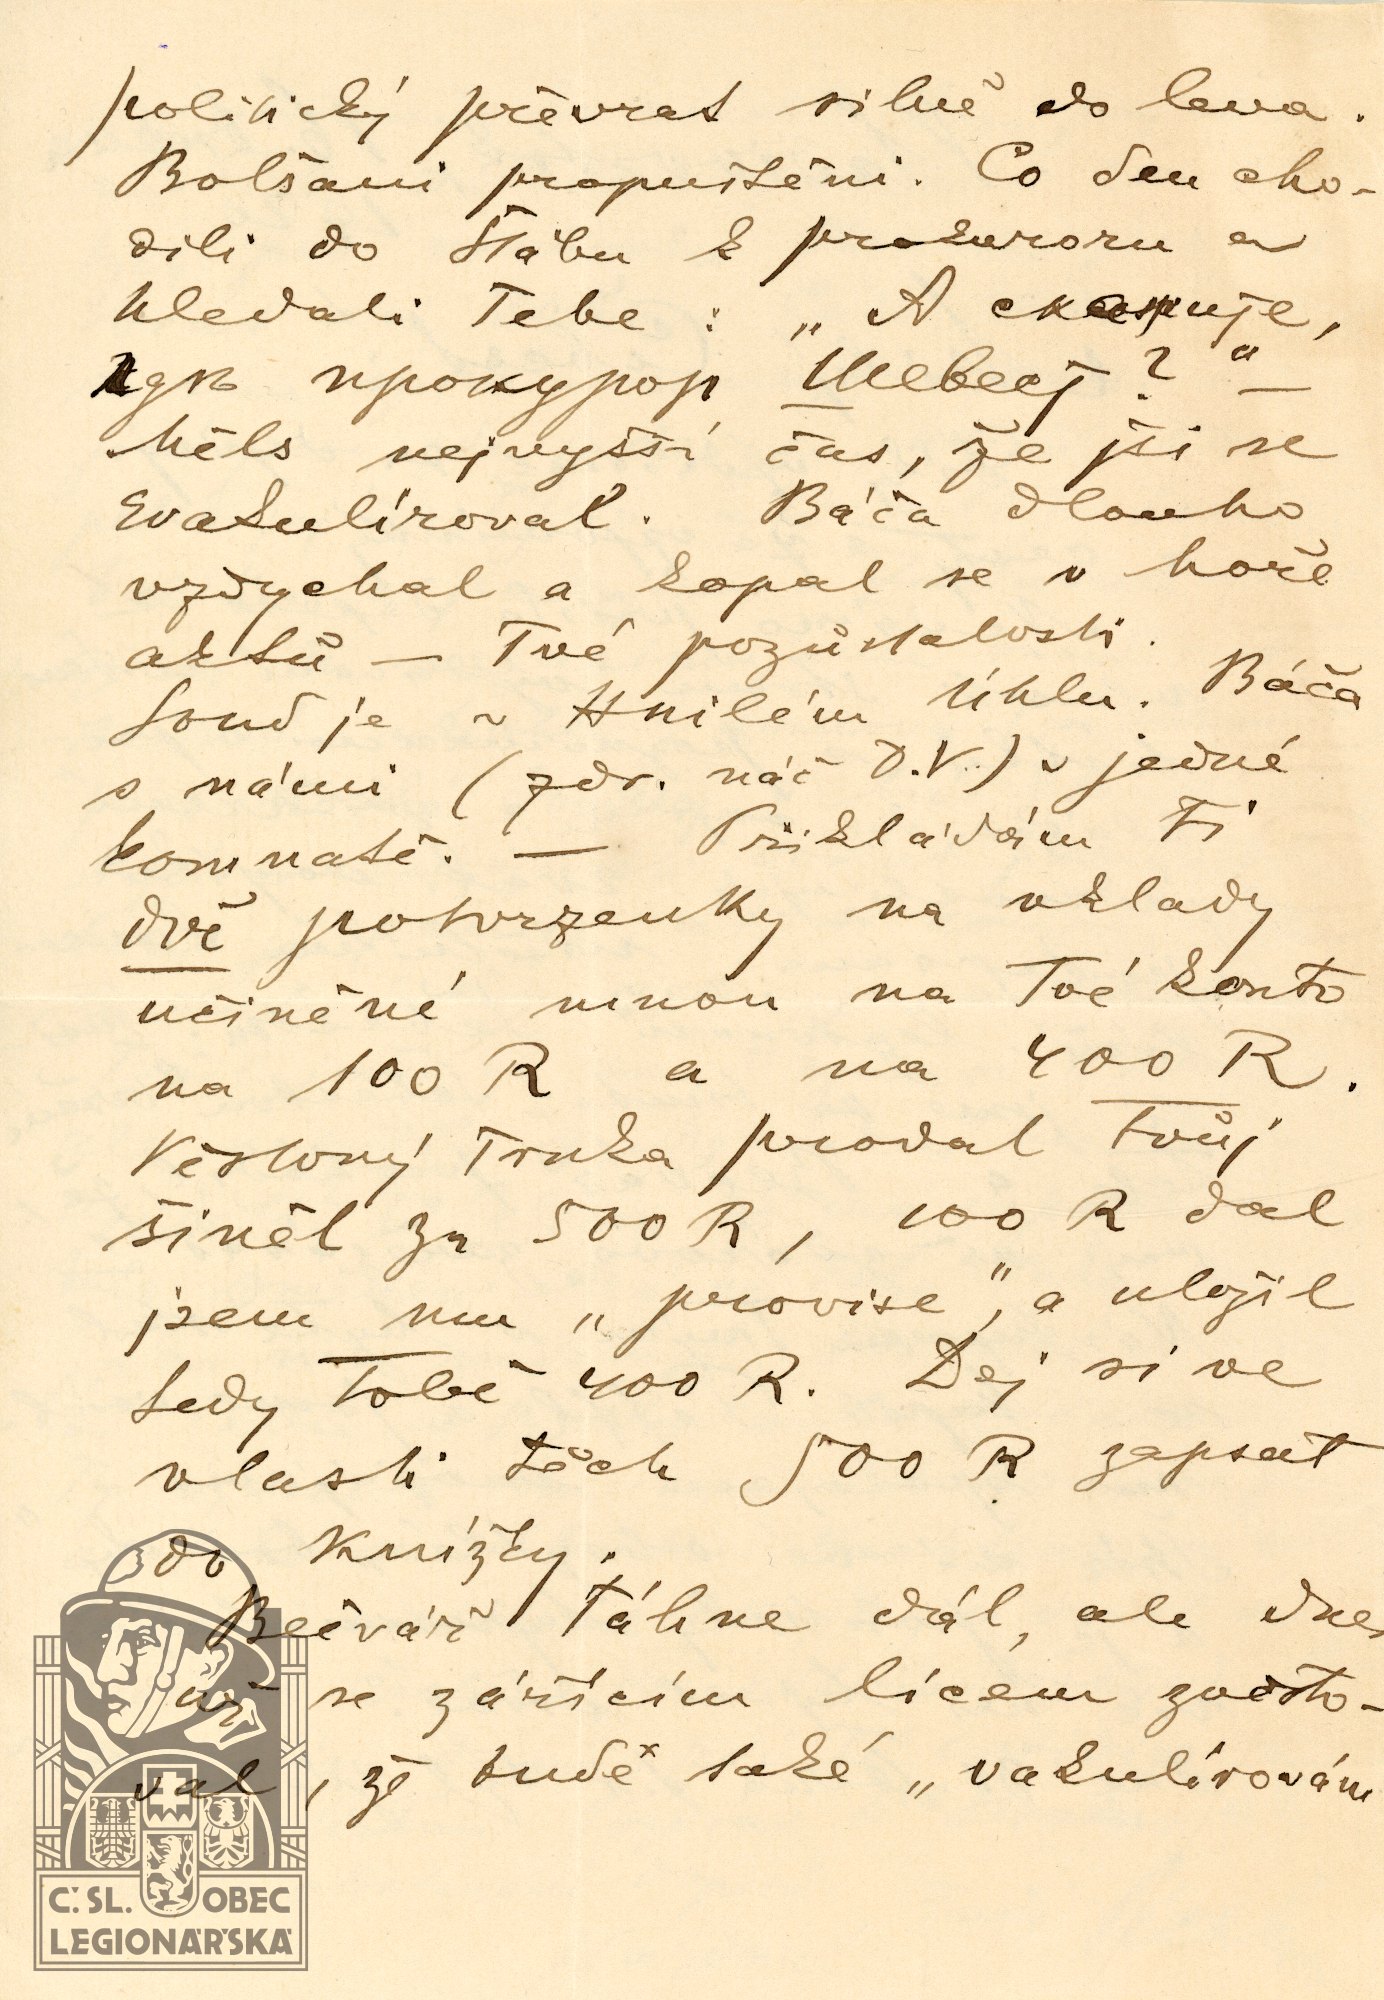 politický převrat silně do leva.
Bolšáni propuštěni. Co den cho-
dili do štábu k prokuroru a
hledali Tebe : „А скажуje,
гдѣ прокурор Шебесj?“ —
Měls nejvyšší čas, že jsi se
evakuíroval. Báča dlouho
vzdychal a kopal se v hoře
aktů — Tvé pozůstalosti.
Soud je v Hnilém Úhlu. Báča
s námi (zdr. náč D.V.) v jedné
komnatě. — Přikládám Ti
dvě potvrzenky na vklady
učiněné mnou na Tvé konto
na 100 R a na 400 R.
Věstový Trnka prodal tvůj
šiněl za 500 R, 100 R dal
jsem mu „provise“, a uložil
tedy Tobě 400 R. Dej si ve
vlasti těch 500 R zapsat
do knížky.
Bečvář táhne dál, ale dnes
už se zářícím lícem zvěsto-
val, že bude také „vakulírovám
Č.SL. OBEC
LEGIONÁŘSKÁ